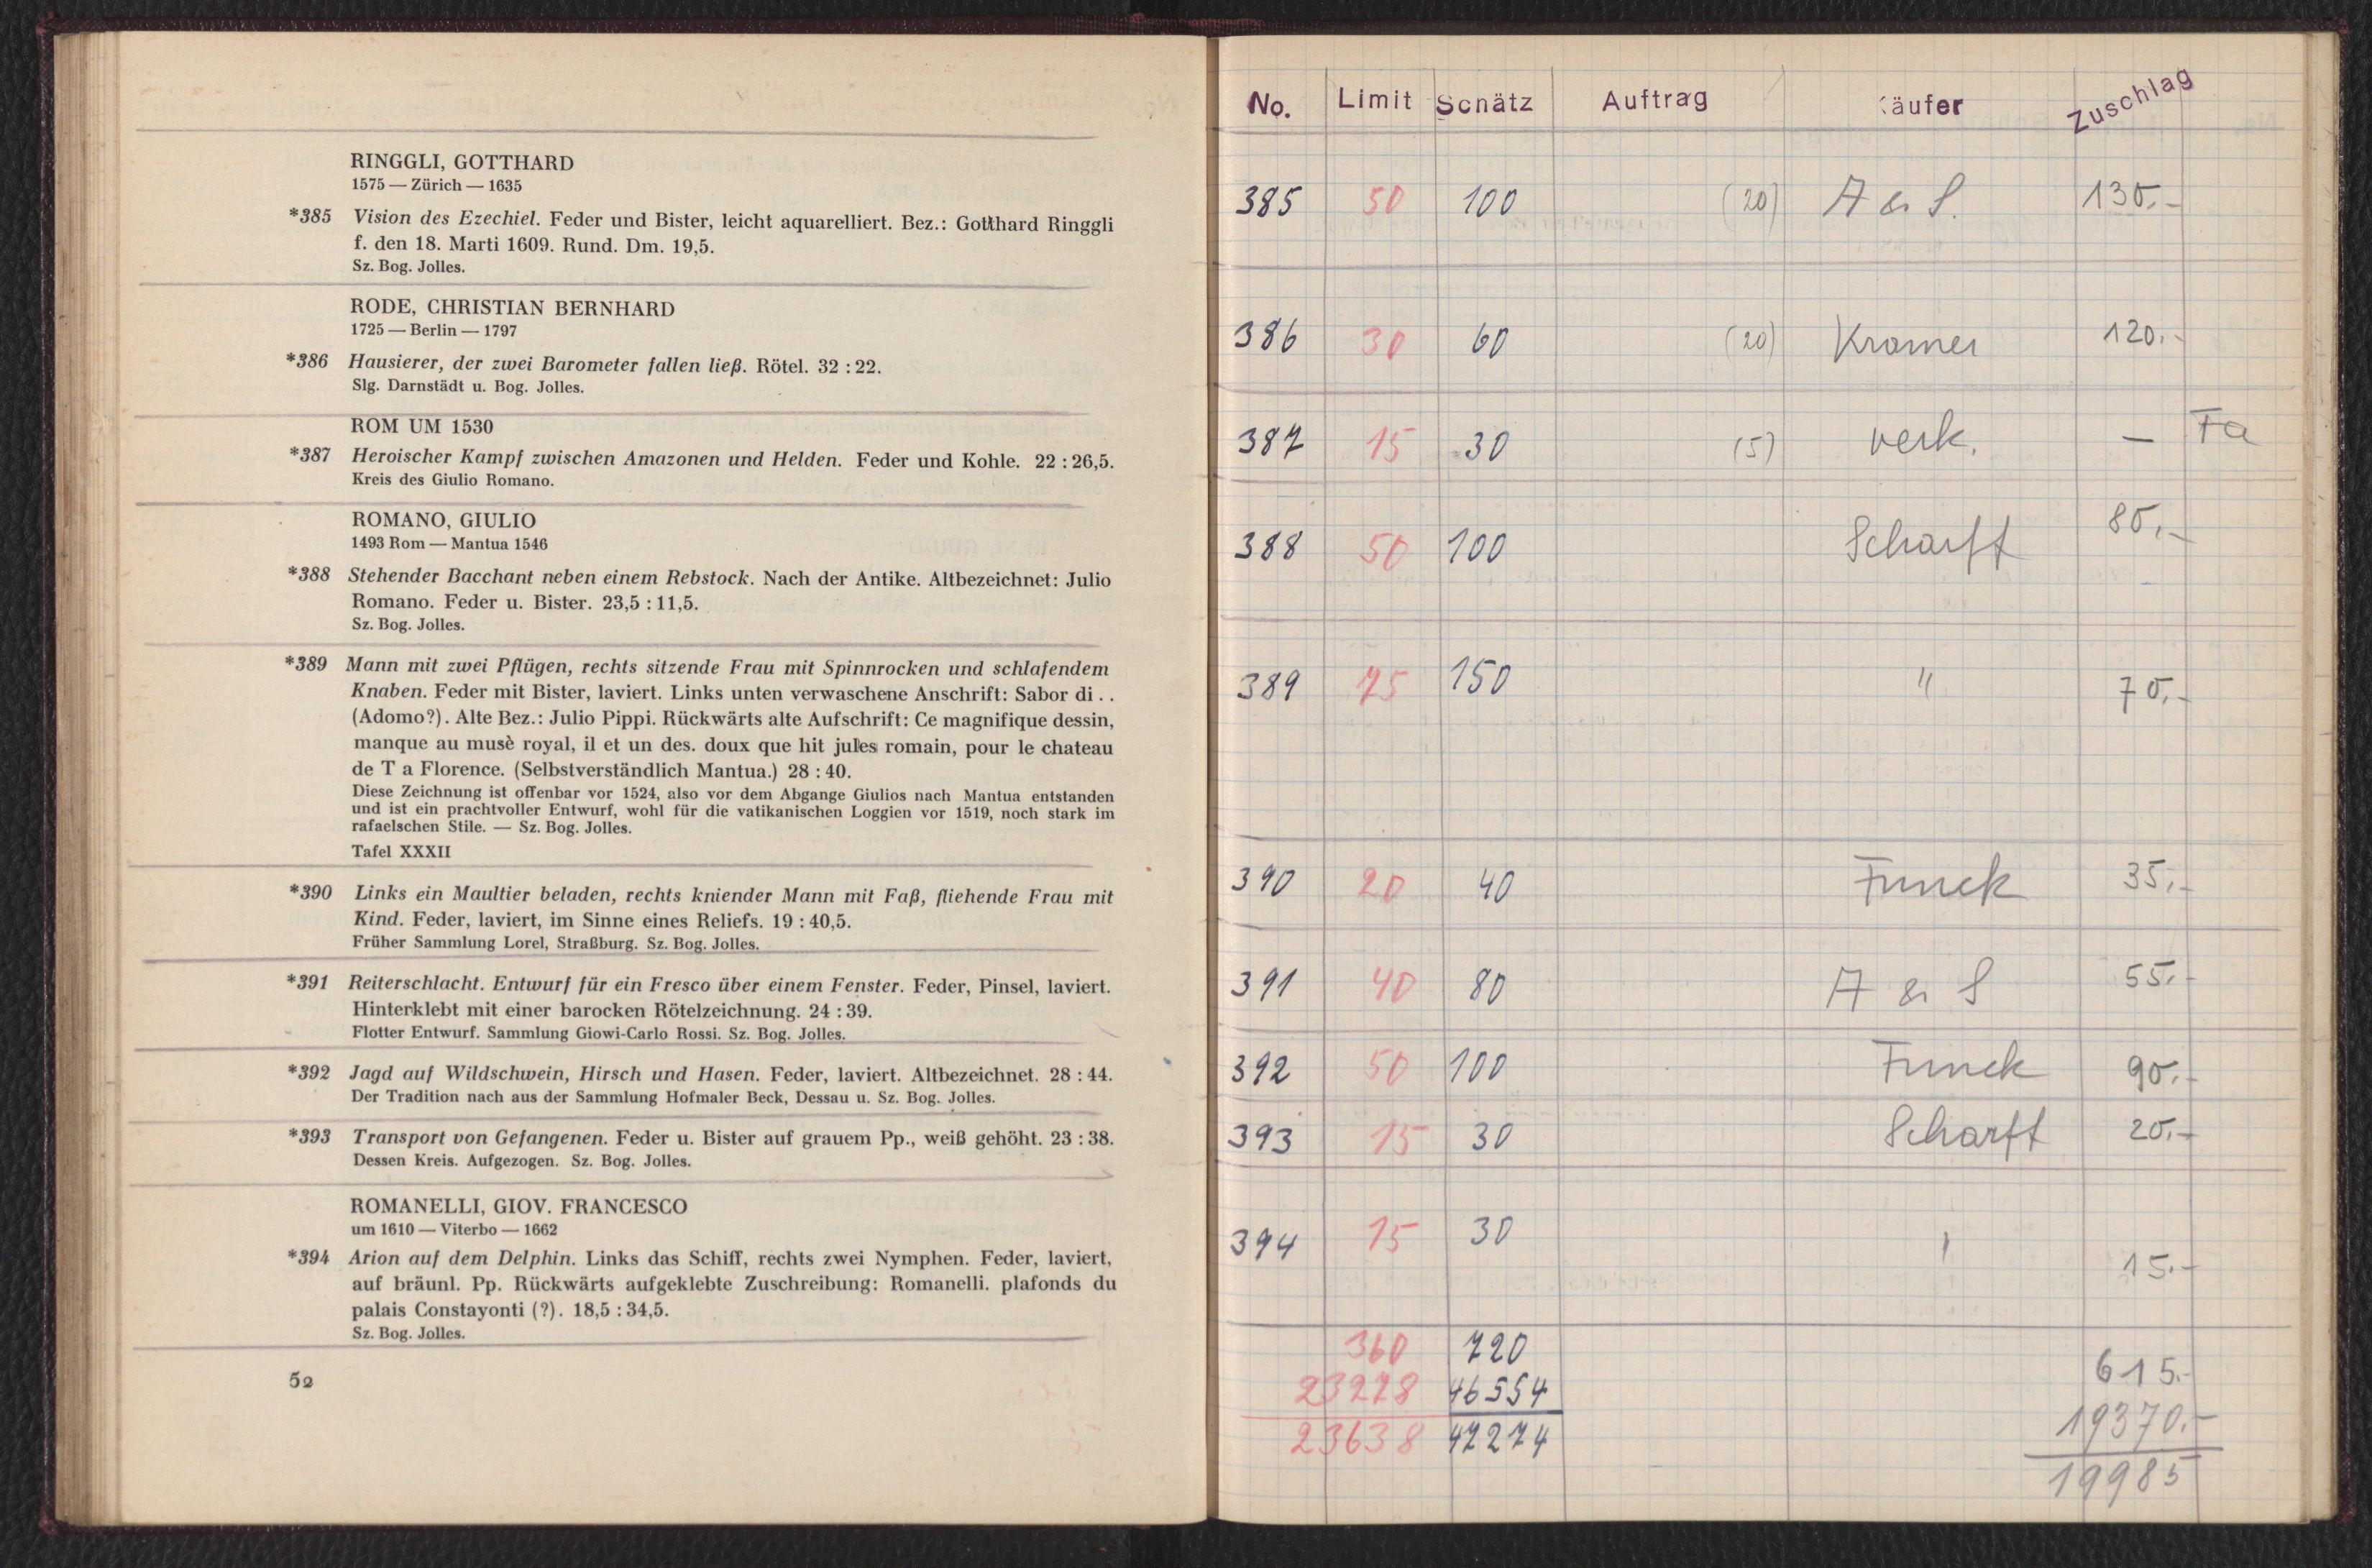 RINGGLI, GOTTHARD
1575 — Zürich — 1635
*385 Vision des Ezechiel. Feder und Bister, leicht aquarelliert. Bez.: Gotthard Ringgli
f. den 18. Marti 1609. Rund. Dm. 19,5.
Sz. Bog. Jolles.
RODE, CHRISTIAN BERNHARD
1725 — Berlin — 1797
*386 Hausierer, der zwei Barometer fallen ließ. Rötel. 32 : 22.
Slg. Darnstädt u. Bog. Jolles.
ROM UM 1530
*387 Heroischer Kampf zwischen Amazonen und Helden. Feder und Kohle. 22 : 26,5.
Kreis des Giulio Romano.
ROMANO, GIULIO
1493 Rom — Mantua 1546
*388 Stehender Bacchant neben einem Rebstock. Nach der Antike. Altbezeichnet: Julio
Romano. Feder u. Bister. 23,5 : 11,5.
Sz. Bog. Jolles.
*389 Mann mit zwei Pflügen, rechts sitzende Frau mit Spinnrocken und schlafendem
Knaben. Feder mit Bister, laviert. Links unten verwaschene Anschrift: Sabor di . .
(Adomo?). Alte Bez.: Julio Pippi. Rückwärts alte Aufschrift: Ce magnifique dessin,
manque au musè royal, il et un des. doux que hit jules romain, pour le chateau
de T a Florence. (Selbstverständlich Mantua.) 28 : 40.
Diese Zeichnung ist offenbar vor 1524, also vor dem Abgange Giulios nach Mantua entstanden
und ist ein prachtvoller Entwurf, wohl für die vatikanischen Loggien vor 1519, noch stark im
rafaelschen Stile. — Sz. Bog. Jolles.
Tafel XXXII
*390 Links ein Maultier beladen, rechts kniender Mann mit Faß, fliehende Frau mit
Kind. Feder, laviert, im Sinne eines Reliefs. 19 : 40,5.
Früher Sammlung Lorel, Straßburg. Sz. Bog. Jolles.
*391 Reiterschlacht. Entwurf für ein Fresco über einem Fenster. Feder, Pinsel, laviert.
Hinterklebt mit einer barocken Rötelzeichnung. 24 : 39.
Flotter Entwurf. Sammlung Giowi-Carlo Rossi. Sz. Bog. Jolles.
*392 Jagd auf Wildschwein, Hirsch und Hasen. Feder, laviert. Altbezeichnet. 28 : 44.
Der Tradition nach aus der Sammlung Hofmaler Beck, Dessau u. Sz. Bog. Jolles.
*393 Transport von Gefangenen. Feder u. Bister auf grauem Pp., weiß gehöht. 23 : 38.
Dessen Kreis. Aufgezogen. Sz. Bog. Jolles.
ROMANELLI, GIOV. FRANCESCO
um 1610 — Viterbo — 1662
*394 Arion auf dem Delphin. Links das Schiff, rechts zwei Nymphen. Feder, laviert,
auf bräunl. Pp. Rückwärts aufgeklebte Zuschreibung: Romanelli. plafonds du
palais Constayonti (?). 18,5 : 34,5.
Sz. Bog. Jolles.
52
No. Limit Schätz Auftrag Käufer Zuschlag
385 50 100 (20) A & S. 130.-
386 30 60 (20) Kramer 120.-
387 15 30 (5) verk. — Fa
388 50 100 Scharff 80.-
389 75 150 " 70.-
390 20 40 Funck 35.-
391 40 80 A & S 55.-
392 50 100 Funck 90.-
393 15 30 Scharff 20.-
394 15 30 " 15.-
360 720 615.-
23278 46554 19370.-
23638 47274 19985